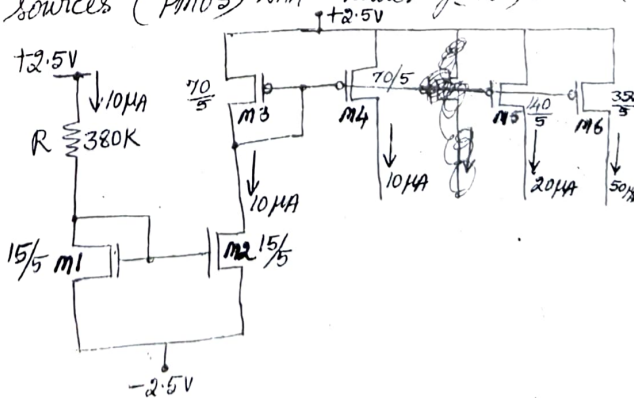 sources (PMOS)
+2.5V
+2.5V
10μA
R 380K
70/5
M3
M4
70/5
M5
140/5
M6
10μA
10μA
20μA
15/5 M1
M2 15/5
-2.5V